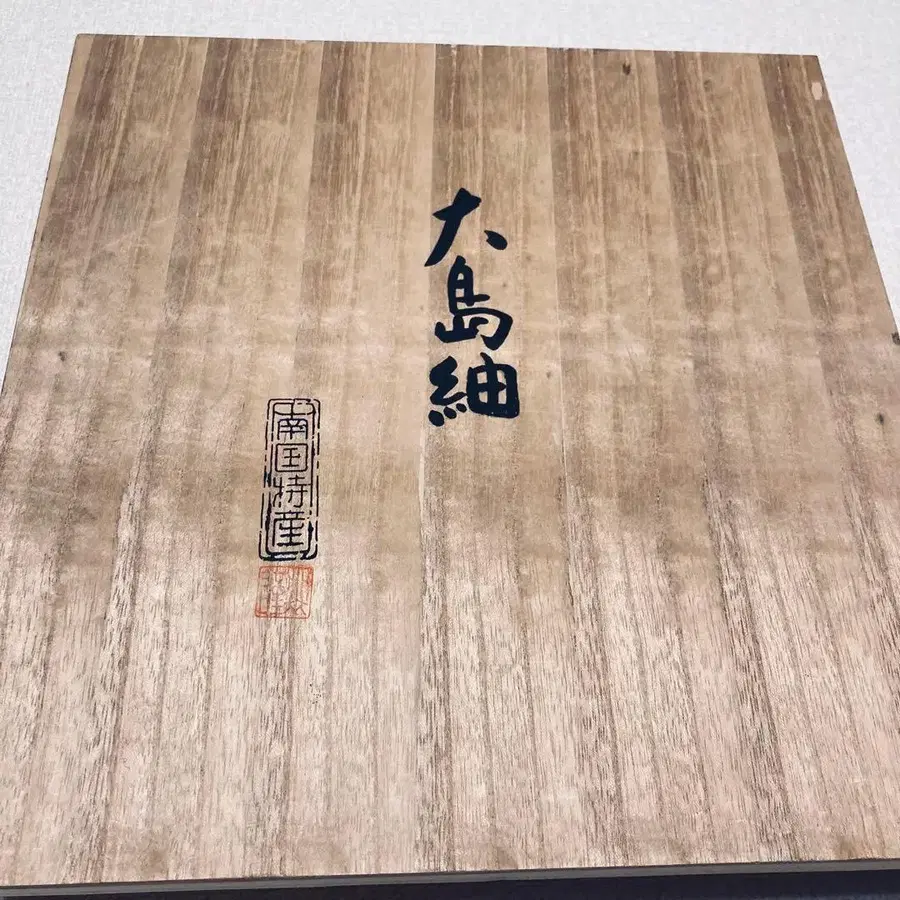 大島紬
南国特産